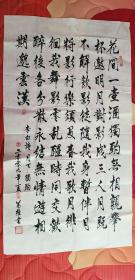 花間一壺酒獨酌無相親舉
杯邀明月對影成三人月既
不解飲影徒隨我身暫伴月
將影行樂須及春我歌月徘
徊我舞影零亂醒時同交歡
醉後各分散永結無情遊相
期邈雲漢
李白詩月下獨酌